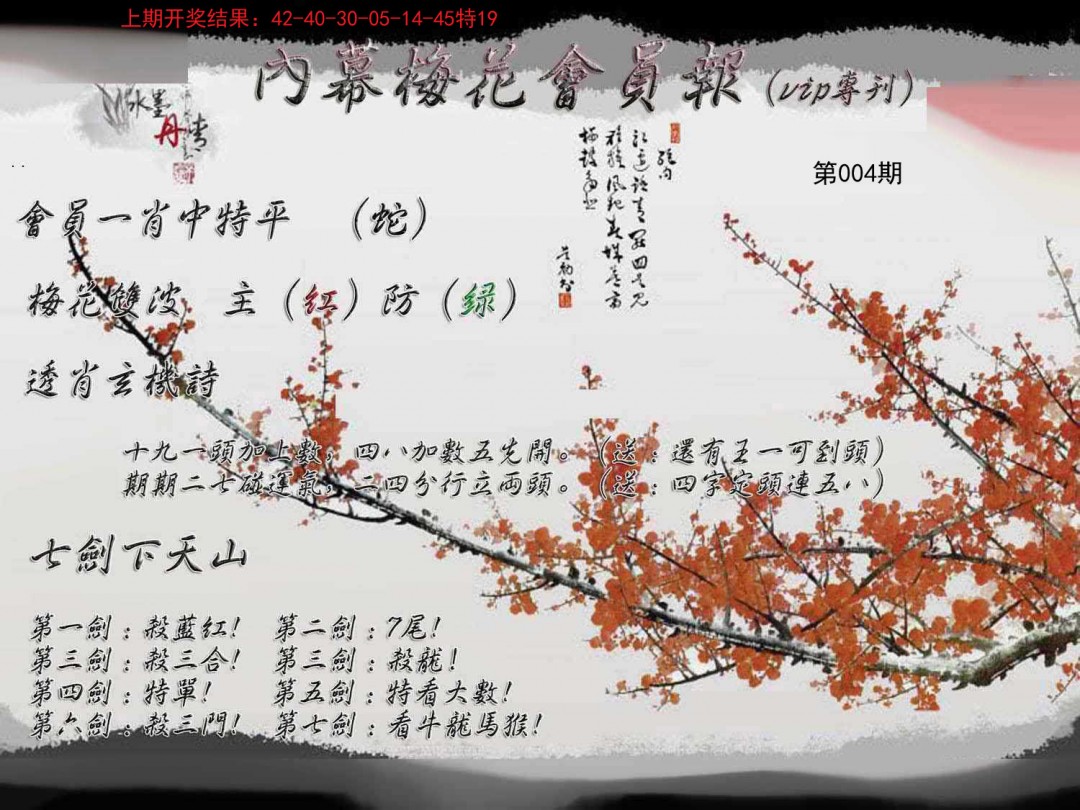 上期开奖结果：42-40-30-05-14-45特19
內幕梅花會員報（vip專刊）
水墨
丹青
第004期
會員一肖中特平 （蛇）
梅花雙波 主（红）防（绿）
透肖玄機詩
十九一頭加上數，四八加數五先開。（送：還有王一可到頭）
期期二七碰運氣，二四分行立両頭。（送：四字定頭連五八）
七劍下天山
第一劍：殺藍红！ 第二劍：7尾！
第三劍：殺三合！ 第三劍：殺龍！
第四劍：特單！ 第五劍：特看大數！
第六劍：殺三門！ 第七劍：看牛龍馬猴！